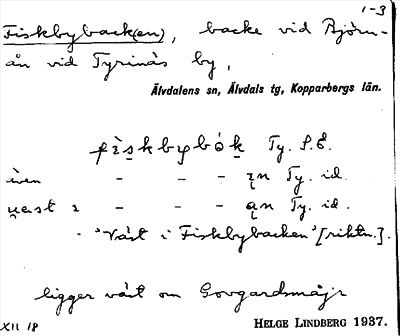 1-3
Fiskbyback(en), backe vid Björn-
ån vid Tyrinäs by,
Älvdalens sn, Älvdals tg, Kopparbergs län.
fìskbybók Ty. S.E.
även - - - ən Ty. id.
- - - ən Ty. id.
- "Väst i Fiskbybacken" [riktn.].
ligger väst om
XII 18 HELGE LINDBERG 1937.